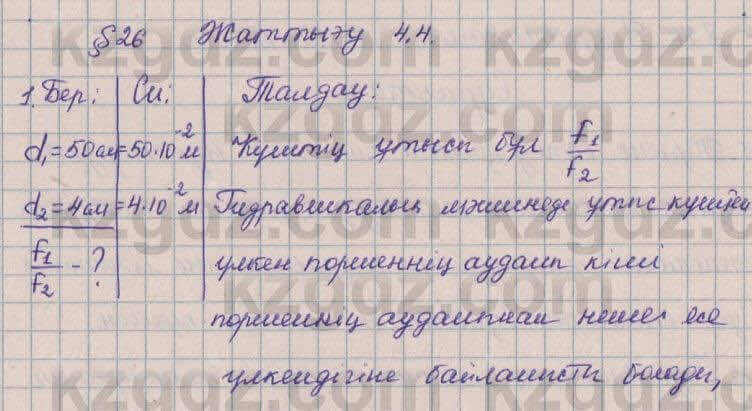 §26 Жаттығу 4.4.
1. Бер: Си: Талдау:
d₁=50см =50·10⁻² м Күштің ұтысы бұл f₁/f₂
d₂=4см =4·10⁻² м Гидравликалық машинада ұтыс күштен
f₁/f₂ - ? үлкен поршеннің ауданы кіші
поршеннің ауданынан неше есе
үлкендігіне байланысты болады,
kzgdz.com